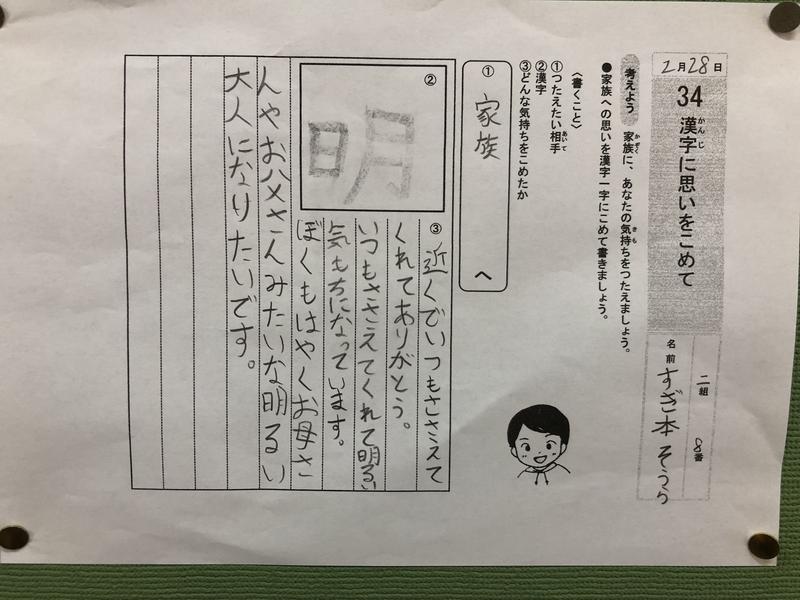 2月28日
34 漢字に思いをこめて
かんじ
名前 すぎ本そうり
二組 8番
考えよう 家族に、あなたの気持ちをつたえましょう。
かぞく
きも
●家族への思いを漢字一字にこめて書きましょう。
〈書くこと〉
①つたえたい相手
あいて
②漢字
③どんな気持ちをこめたか
① 家族 へ
② 明
③ 近くでいつもささえて
くれてありがとう。
いつもささえてくれて明るい
気もちになっています。
ぼくもはやくお母さ
んやお父さんみたいな明るい
大人になりたいです。